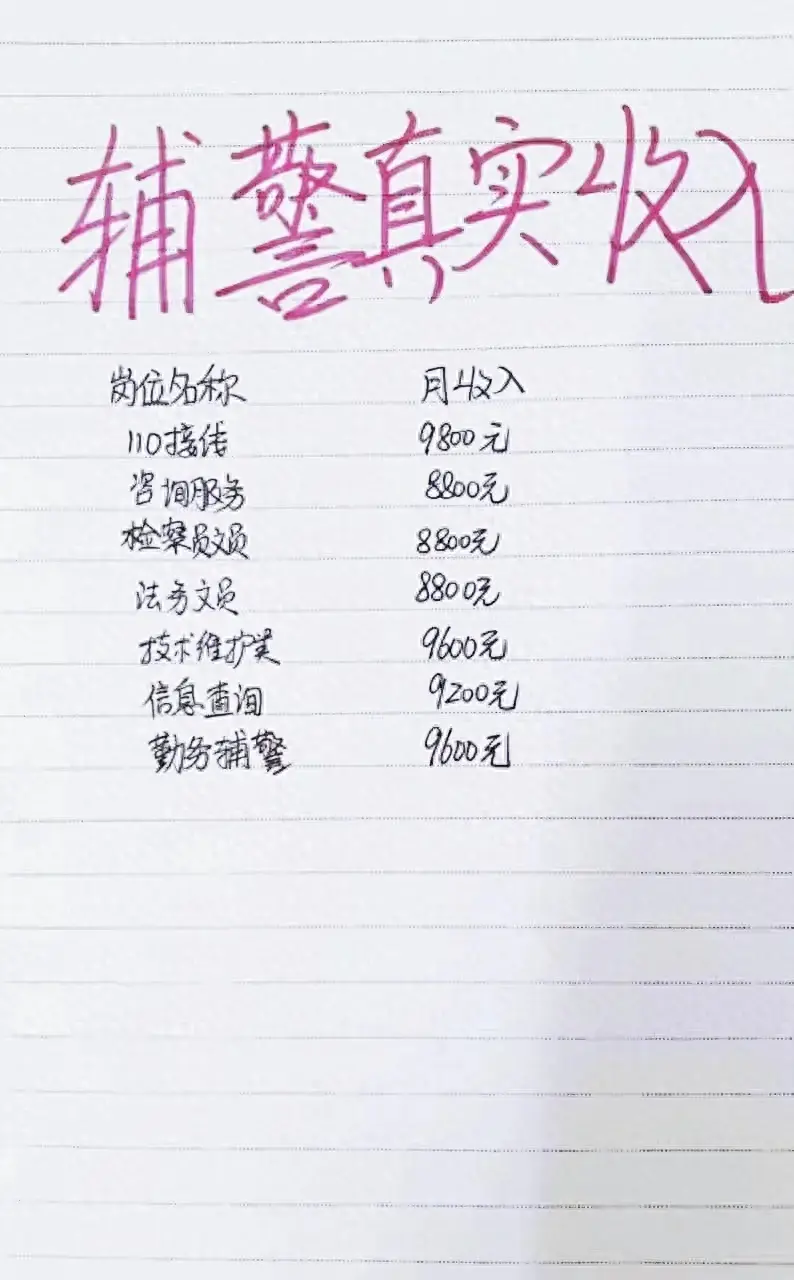 辅警真实收入
岗位名称 月收入
110接线 9800元
咨询服务 8800元
检案员文员 8800元
法务文员 8800元
技术维护类 9600元
信息查询 9200元
勤务辅警 9600元